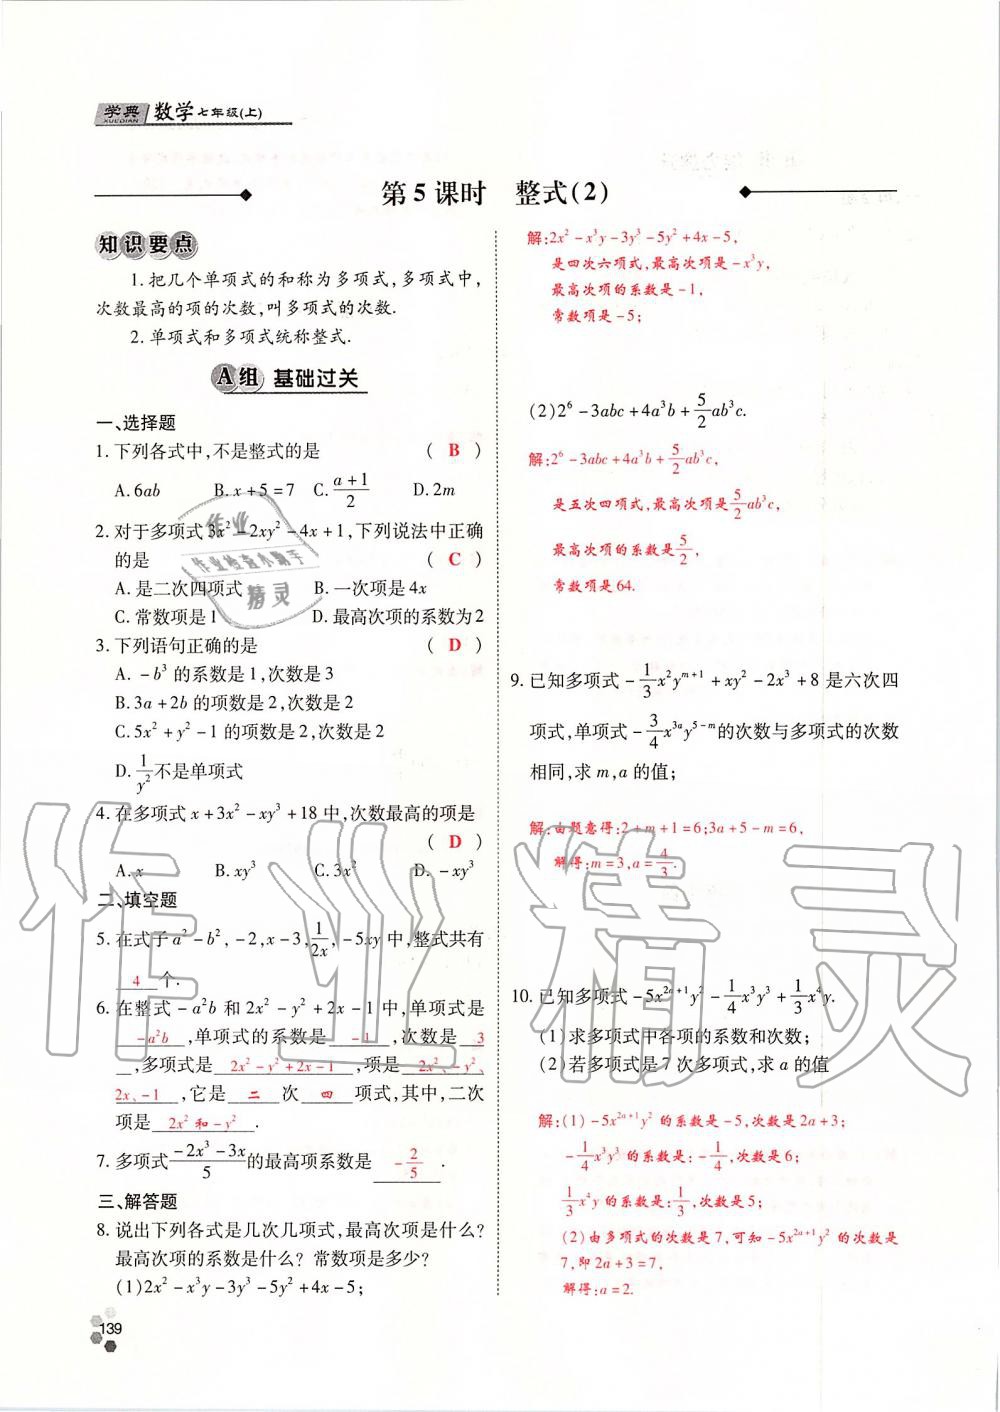 学典 XUEDIAN 数学七年级(上)
第5课时 整式(2)
知识要点
1.把几个单项式的和称为多项式,多项式中,
次数最高的项的次数,叫多项式的次数.
2.单项式和多项式统称整式.
A组 基础过关
一、选择题
1.下列各式中,不是整式的是 ( B )
A.6ab B.x+5=7 C.(a+1)/2 D.2m
2.对于多项式3x²-2xy²-4x+1,下列说法中正确
的是 ( C )
A.是二次四项式 B.一次项是4x
C.常数项是1 D.最高次项的系数为2
3.下列语句正确的是 ( D )
A.-b³的系数是1,次数是3
B.3a+2b的项数是2,次数是2
C.5x²+y²-1的项数是2,次数是2
D.1/y²不是单项式
4.在多项式x+3x²-xy³+18中,次数最高的项是
( D )
A.x B.xy³ C.3x² D.-xy³
二、填空题
5.在式子a²-b²,-2,x-3,1/(2x),-5xy中,整式共有
4 个.
6.在整式-a²b和2x²-y²+2x-1中,单项式是
-a²b,单项式的系数是 -1 ,次数是 3
,多项式是 2x²-y²+2x-1 ,项是 2x²、-y²、
2x、-1 ,它是 二 次 四 项式,其中,二次
项是 2x²和-y² .
7.多项式(-2x³-3x)/5的最高项系数是 -2/5
三、解答题
8.说出下列各式是几次几项式,最高次项是什么?
最高次项的系数是什么? 常数项是多少?
(1)2x²-x³y-3y³-5y²+4x-5;
139
解:2x²-x³y-3y³-5y²+4x-5,
是四次六项式,最高次项是-x³y,
最高次项的系数是-1,
常数项是-5;
(2)2⁶-3abc+4a³b+5/2ab³c.
解:2⁶-3abc+4a³b+5/2ab³c,
是五次四项式,最高次项是5/2ab³c,
最高次项的系数是5/2,
常数项是64.
9.已知多项式-1/3x²yᵐ⁺¹+xy²-2x³+8是六次四
项式,单项式-3/4x³ᵃy⁵⁻ᵐ的次数与多项式的次数
相同,求m,a的值;
解:由题意得:2+m+1=6;3a+5-m=6,
解得:m=3,a=4/3.
10.已知多项式-5x²ᵃ⁺¹y²-1/4x³y³+1/3x⁴y.
(1)求多项式中各项的系数和次数;
(2)若多项式是7次多项式,求a的值
解:(1)-5x²ᵃ⁺¹y²的系数是-5,次数是2a+3;
-1/4x³y³的系数是:-1/4,次数是6;
1/3x⁴y的系数是:1/3,次数是5;
(2)由多项式的次数是7,可知-5x²ᵃ⁺¹y²的次数是
7,即2a+3=7,
解得:a=2.
作业精灵
作业
作业检查小助手
精灵